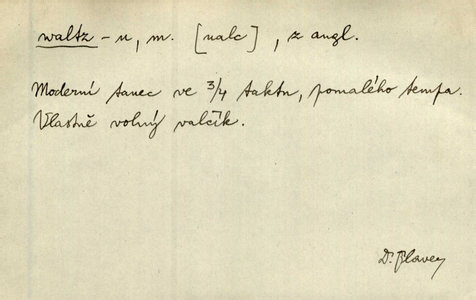 waltz - u, m. [valc], z angl.
Moderní tanec ve 3/4 taktu, pomalého tempa.
Vlastně volný valčík.